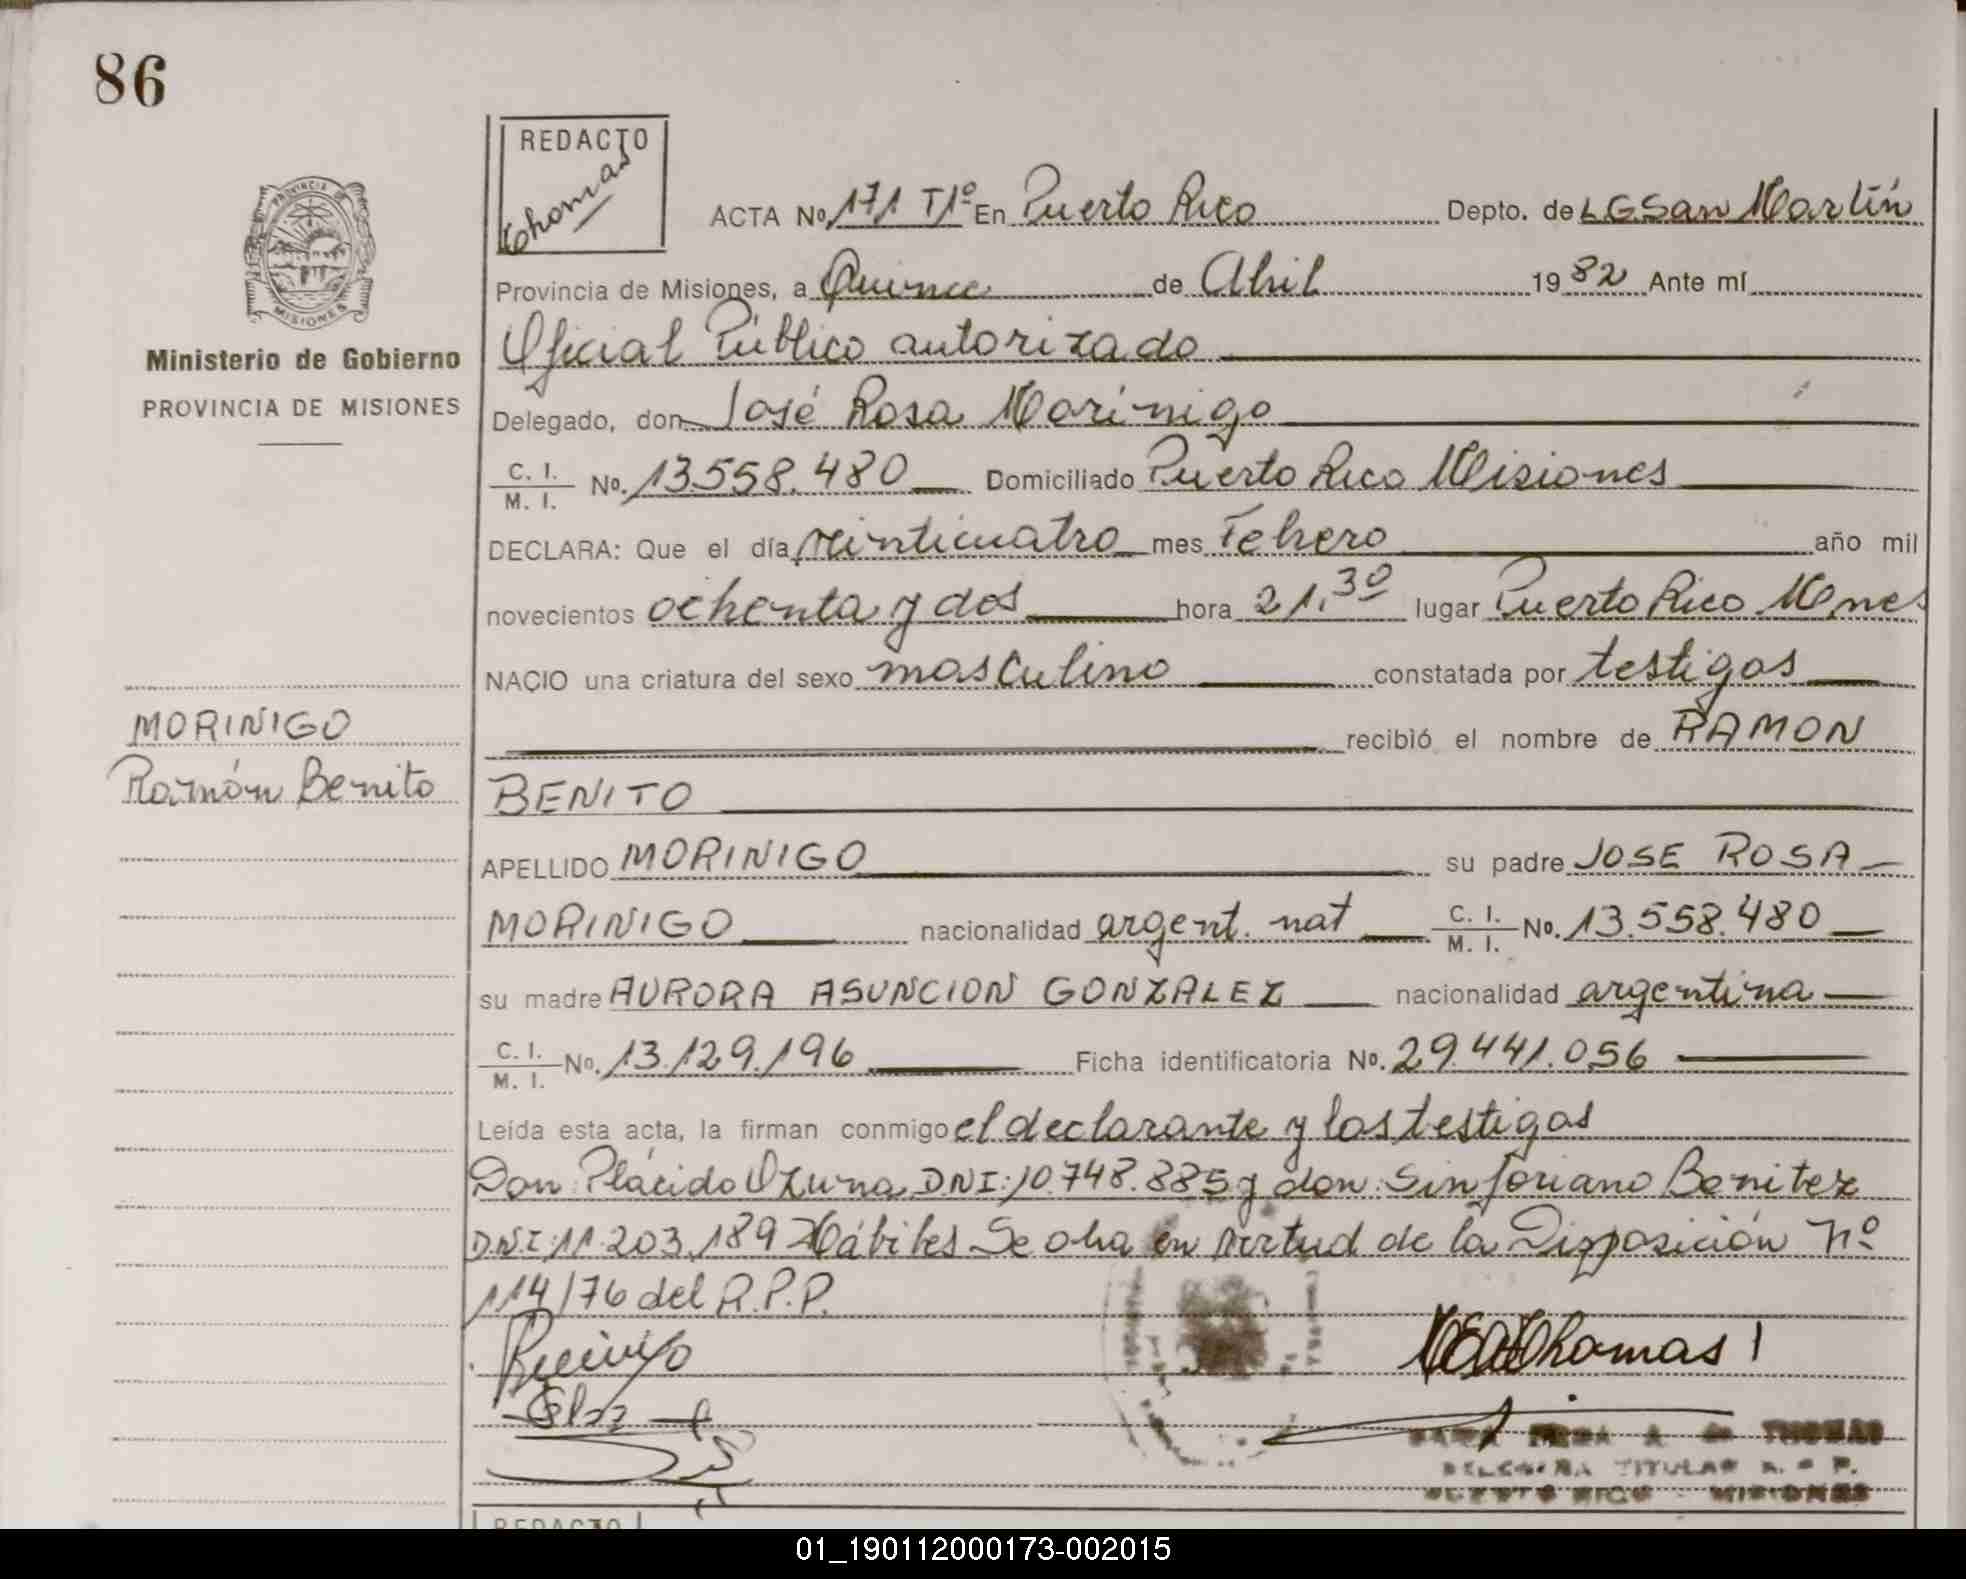 86
REDACTO
Thomas
PROVINCIA DE
MISIONES
Ministerio de Gobierno
PROVINCIA DE MISIONES
ACTA No. 171 T1º En Puerto Rico Depto. de L G San Martín
Provincia de Misiones, a Quince de Abril 1982 Ante mí
Oficial Público autorizado
Delegado, don José Rosa Morínigo
C. I. / M. I. No. 13.558.480 Domiciliado Puerto Rico Misiones
DECLARA: Que el día veinticuatro mes Febrero año mil
novecientos ochenta y dos hora 21.30 lugar Puerto Rico Mnes
NACIO una criatura del sexo masculino constatada por testigos
recibió el nombre de RAMON
BENITO
MORINIGO
Ramón Benito
APELLIDO MORINIGO su padre JOSE ROSA
MORINIGO nacionalidad argent. nat C. I. / M. I. No. 13.558.480
su madre AURORA ASUNCION GONZALEZ nacionalidad argentina
C. I. / M. I. No. 13.129.196 Ficha identificatoria No. 29.441.056
Leída esta acta, la firman conmigo el declarante y los testigos
Don Plácido Ozuna DNI: 10.748.885 y don Sinforiano Benitez
D.N.I: 11.203.189 Hábiles Se oba en virtud de la Disposición Nº
114/76 del R.P.P.
Thomas
A de THOMAS
TITULAR R. P.
PUERTO RICO - MISIONES
REDACTO
01_190112000173-002015